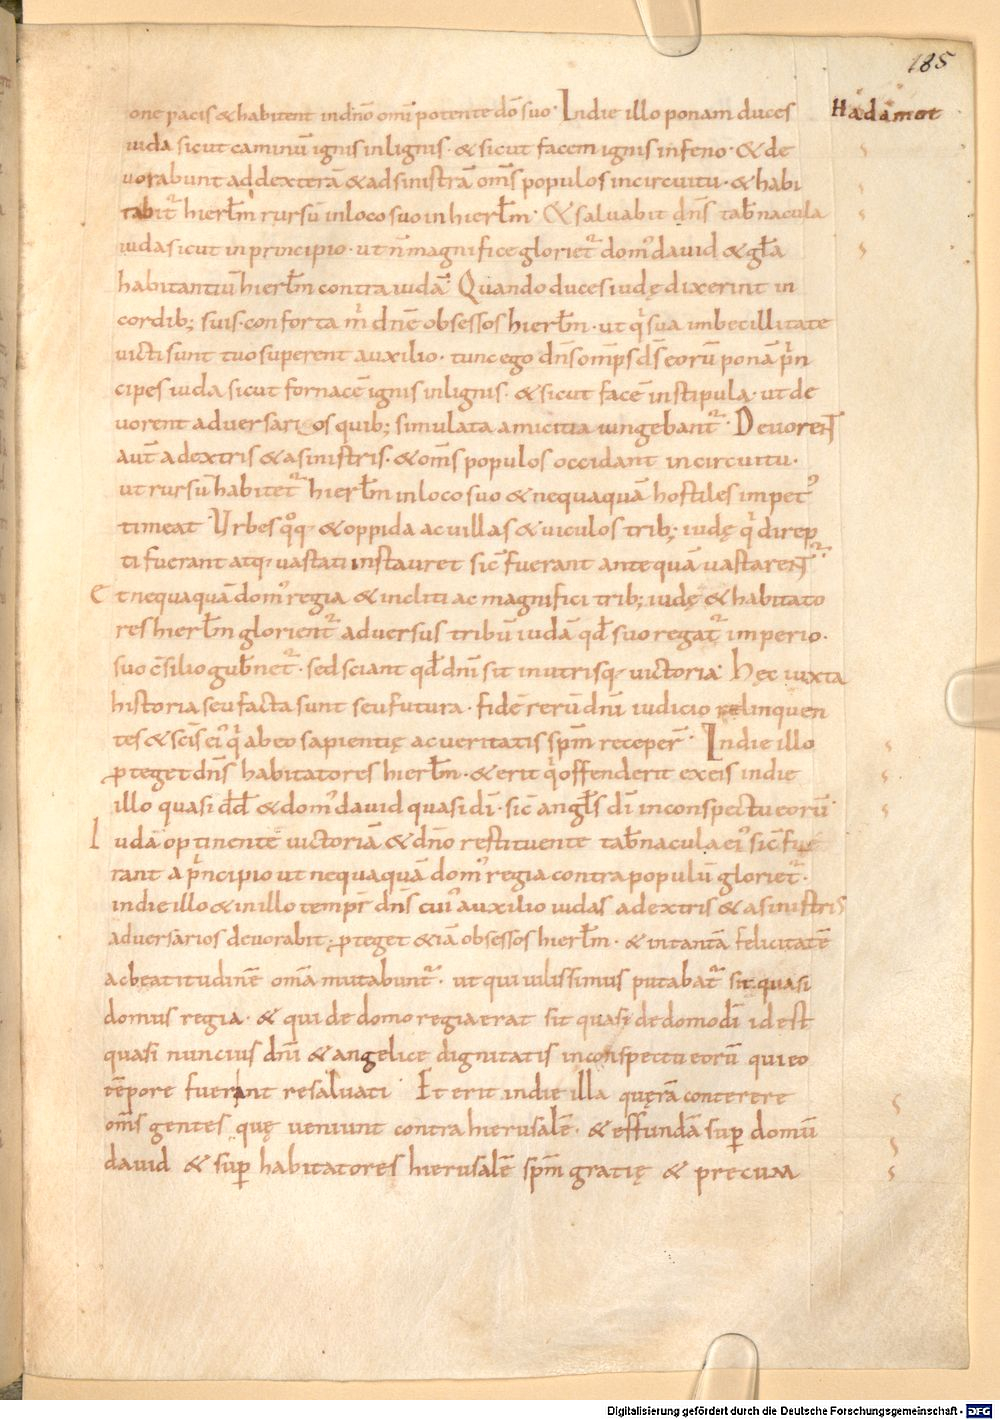 185
Hadamot
one pacis & habitent in dn̄o om̄i potente dō suo. In die illo ponam duces
iuda sicut caminū ignis in lignis. & sicut facem ignis in feno. & de
uorabunt ad dexterā & ad sinistrā om̄s populos in circuitu. & habi
tabit᷑ hierłm rursū in loco suo in hierłm. & saluabit dn̄s tab̄nacula
iuda sicut in principio. ut n̄ magnifice gloriet᷑ domꝰ dauid & gła
habitantiū hierłm contra iudā. Quando duces iudę dixerint in
cordib; suis. conforta m̄ dn̄e obsessos hierłm. ut q sua imbecillitate
uicti sunt tuo superent auxilio. tunc ego dn̄s om̄ps d̄s eorū ponā p̄n
cipes iuda sicut fornacē ignis in lignis. & sicut facē in stipula. ut de
uorent aduersarios quib; simulata amicitia iungebant᷑. Deuorent
aut̄ a dextris & a sinistris. & om̄s populos occidant in circuitu.
ut rursū habitet᷑ hierłm in loco suo & nequaquā hostiles impetꝰ
timeat. Urbes qōq & oppida ac uillas & uiculos trib; iudę q direp
ti fuerant atq uastati instauret sic̄ fuerant antequā uastarent᷑
Et nequaquā domꝰ regia & incliti ac magnifici trib; iudę & habitato
res hierłm glorient᷑ aduersus tribū iudā qđ suo regat᷑ imperio.
suo c̄silio gub̄net᷑. sed sciant qđ dn̄i sit in utrisq uictoria. Hęc iuxta
historiā seu facta sunt seu futura. fidē rerū dn̄i iudicio relinquen
tes & sc̄is eiꝰ q ab eo sapientię ac ueritatis sp̄m receper̄. In die illo
ꝓteget dn̄s habitatores hierłm. & erit q offenderit ex eis in die
illo quasi dđ & domꝰ dauid quasi dī. sic̄ angłs dī in conspectu eorū.
Iudā optinentē uictoriā & dn̄o restituente tab̄nacula eiꝰ sic̄ fue
rant a p̄ncipio ut nequaquā domꝰ regia contra populū gloriet᷑.
in die illo & in illo tempr̄ dn̄s cuiꝰ auxilio iudas a dextris & a sinistris
aduersarios deuorabit. ꝓteget & iā obsessos hierłm. & in tantā felicitatē
ac beatitudinē om̄a mutabunt᷑. ut qui uilissimus putabat᷑ sit quasi
domus regia. & qui de domo regia erat sit quasi de domo dī id est
quasi nuncius dn̄i & angelice dignitatis in conspectu eorū qui eo
tēpore fuerant resaluati. Et erit in die illa quęrā conterere
om̄s gentes quę ueniunt contra hierusalē. & effundā suꝑ domū
dauid & suꝑ habitatores hierusalē sp̄m gratię & precum
Digitalisierung gefördert durch die Deutsche Forschungsgemeinschaft - DFG